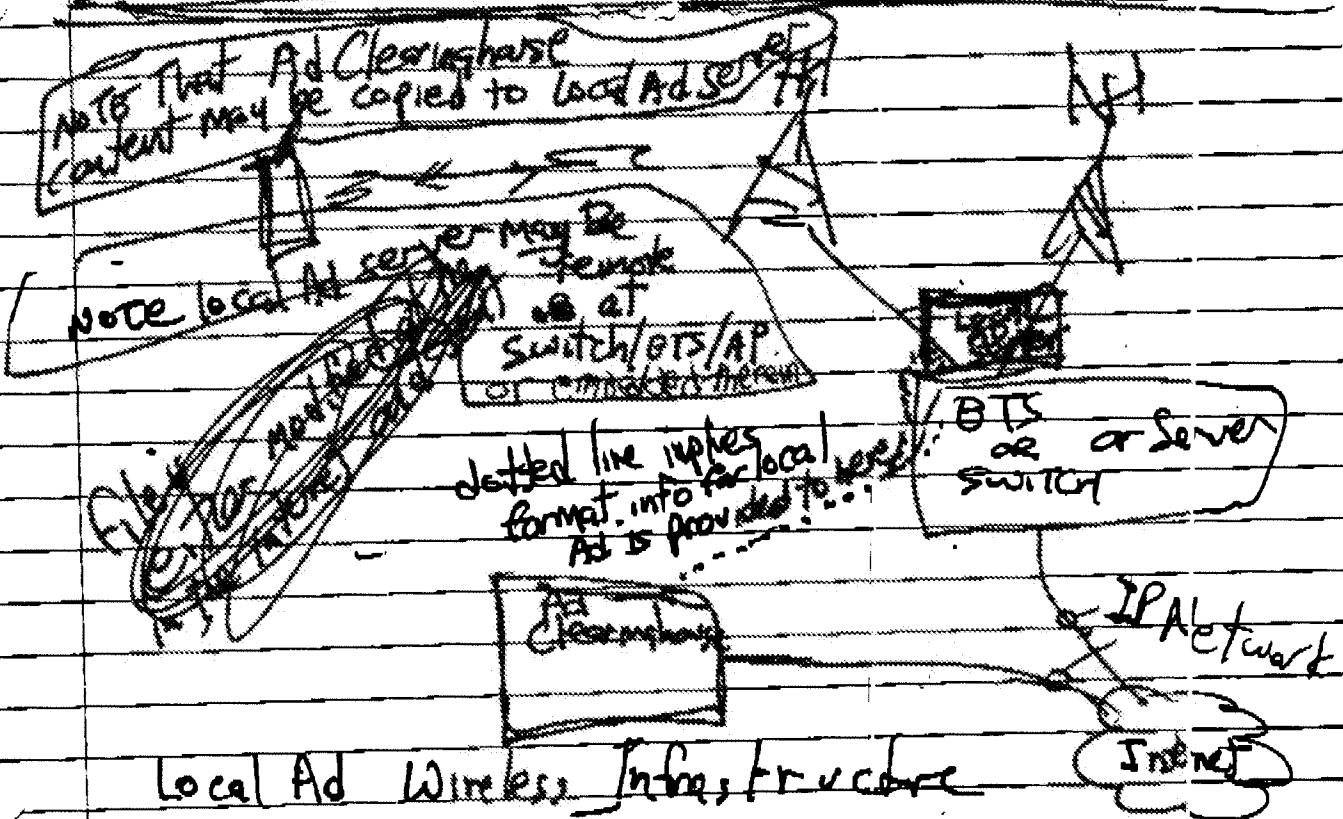 NOTE That Ad Clearinghouse
content may be copied to local Ad server
NOTE local Ad server may be
remote
at
Switch/BTS/AP
or embedded therein
Local
Ad
Server
BTS
OR or Server
SWITCH
dotted line implies
format info for local
Ad is provided to here
Ad
Clearinghouse
IP Network
Internet
Local Ad Wireless Infrastructure